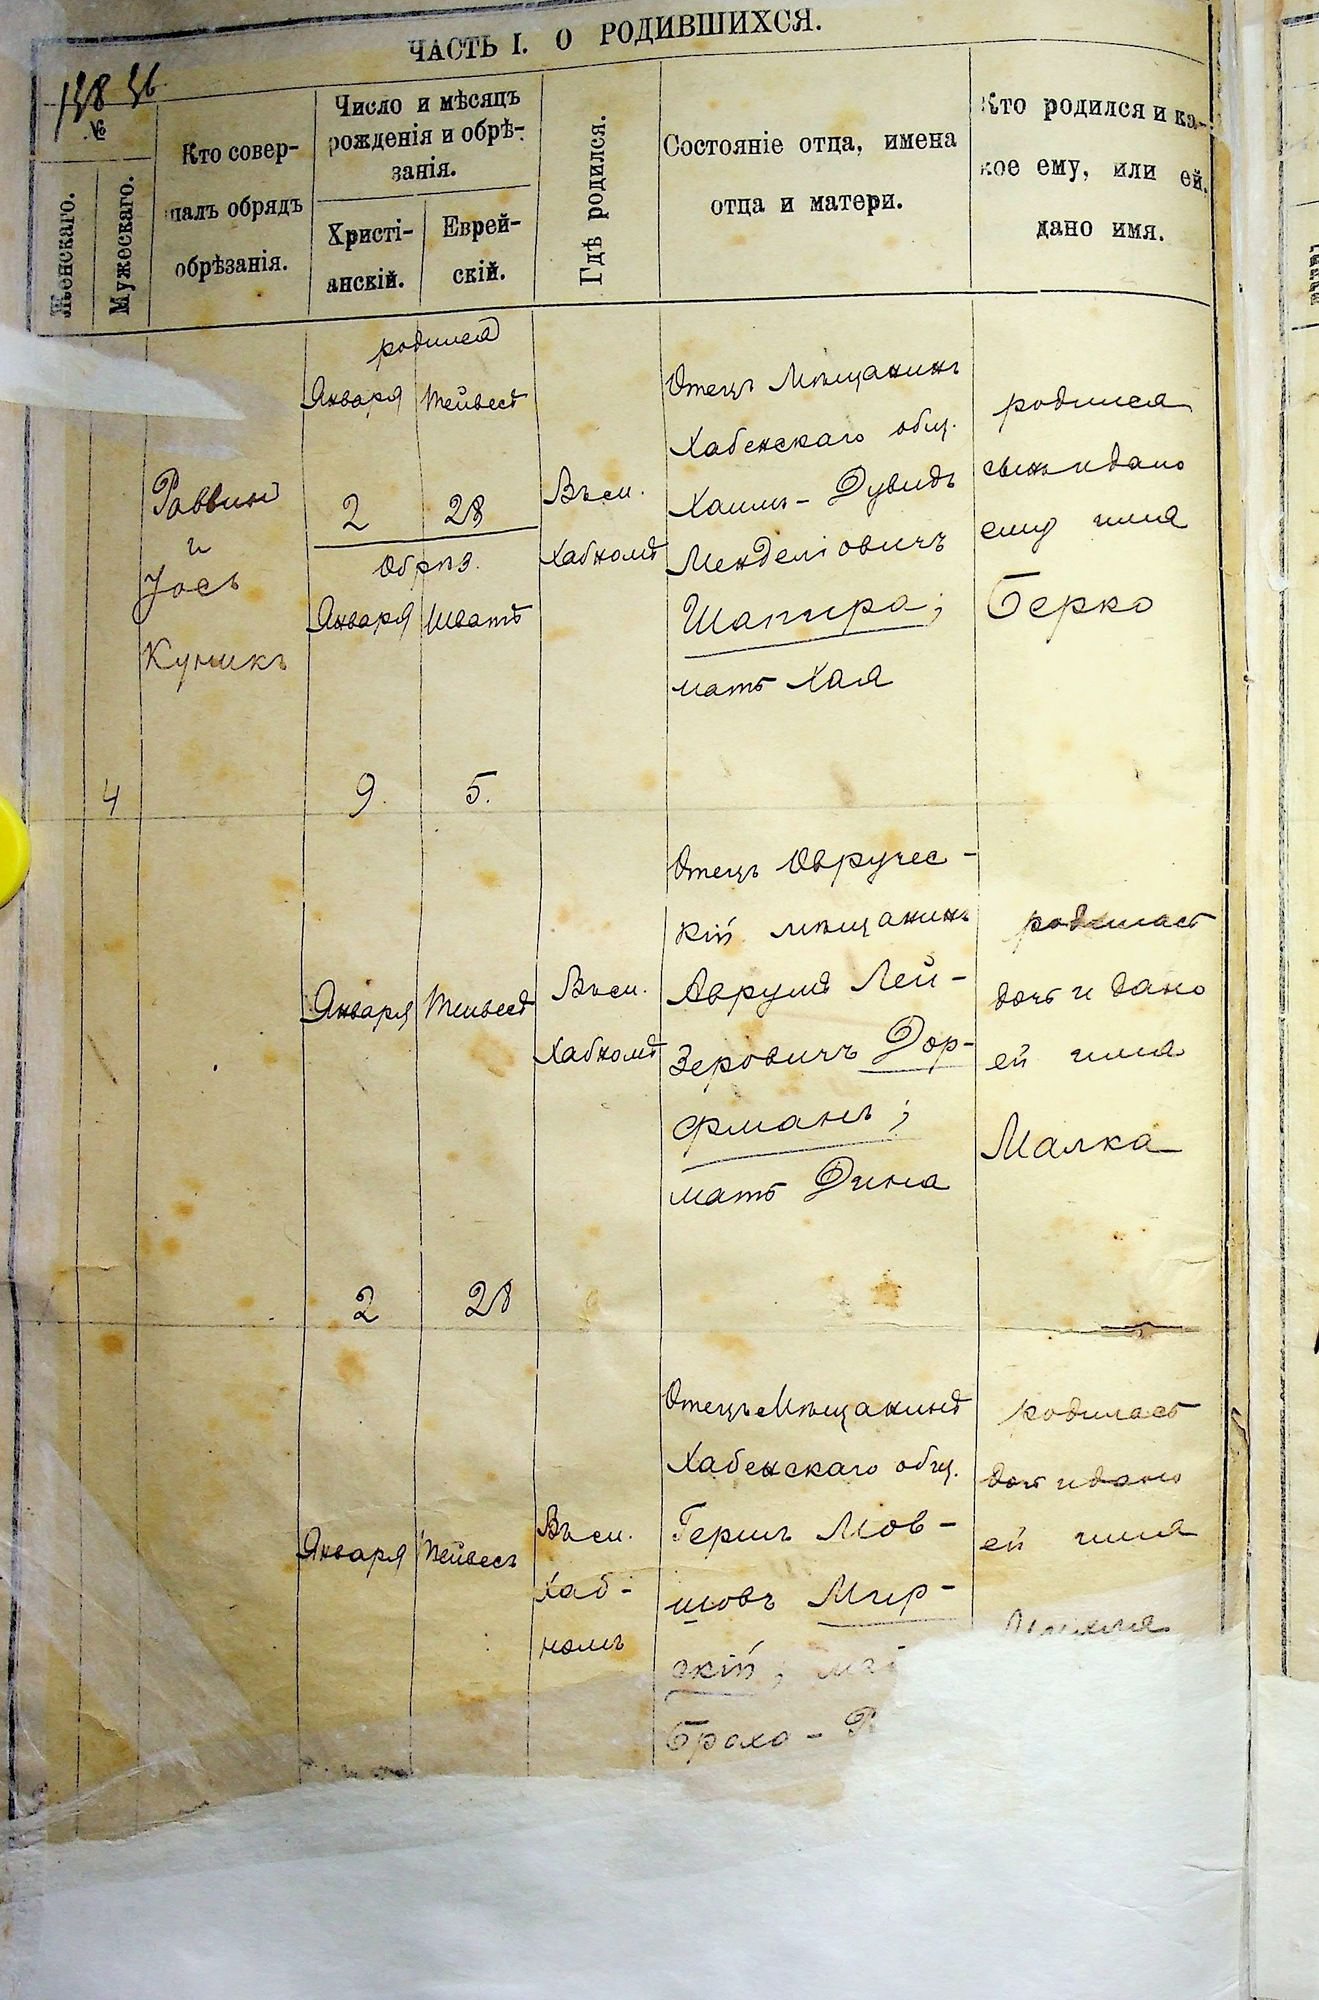 ЧАСТЬ I. О РОДИВШИХСЯ.
№
Женскаго.
Мужескаго.
Кто совер-
шалъ обрядъ
обрѣзанія.
Число и мѣсяцъ
рожденія и обрѣ-
занія.
Христі-
анскій.
Еврей-
скій.
Гдѣ родился.
Состояніе отца, имена
отца и матери.
Кто родился и ка-
кое ему, или ей,
дано имя.
4
Раввин
и
Іось
Куникъ
родился
Января Тейвест
2 28
Обрѣз.
Января Шватъ
9. 5.
Въ с м.
Хабномѣ
Отецъ Мѣщанинъ
Хабенскаго общ.
Хаимъ-Дувидъ
Менделіовичъ
Шапира;
мать Хая
родился
сынъ и дано
ему имя
Берко
Января Тейвест
2 28
Въ с м.
Хабномѣ
Отецъ Овручес-
кій мѣщанинъ
Аврумъ Лей-
зеровичъ Дор-
фманъ;
мать Дина
родилась
дочь и дано
ей имя
Малка
Января Тейвесъ
Въ с м.
Хаб-
номъ
Отецъ Мѣщанинъ
Хабенскаго общ.
Гершъ Мов-
шовъ Мир-
скій;
Брохо-
родилась
дочь и дано
ей имя